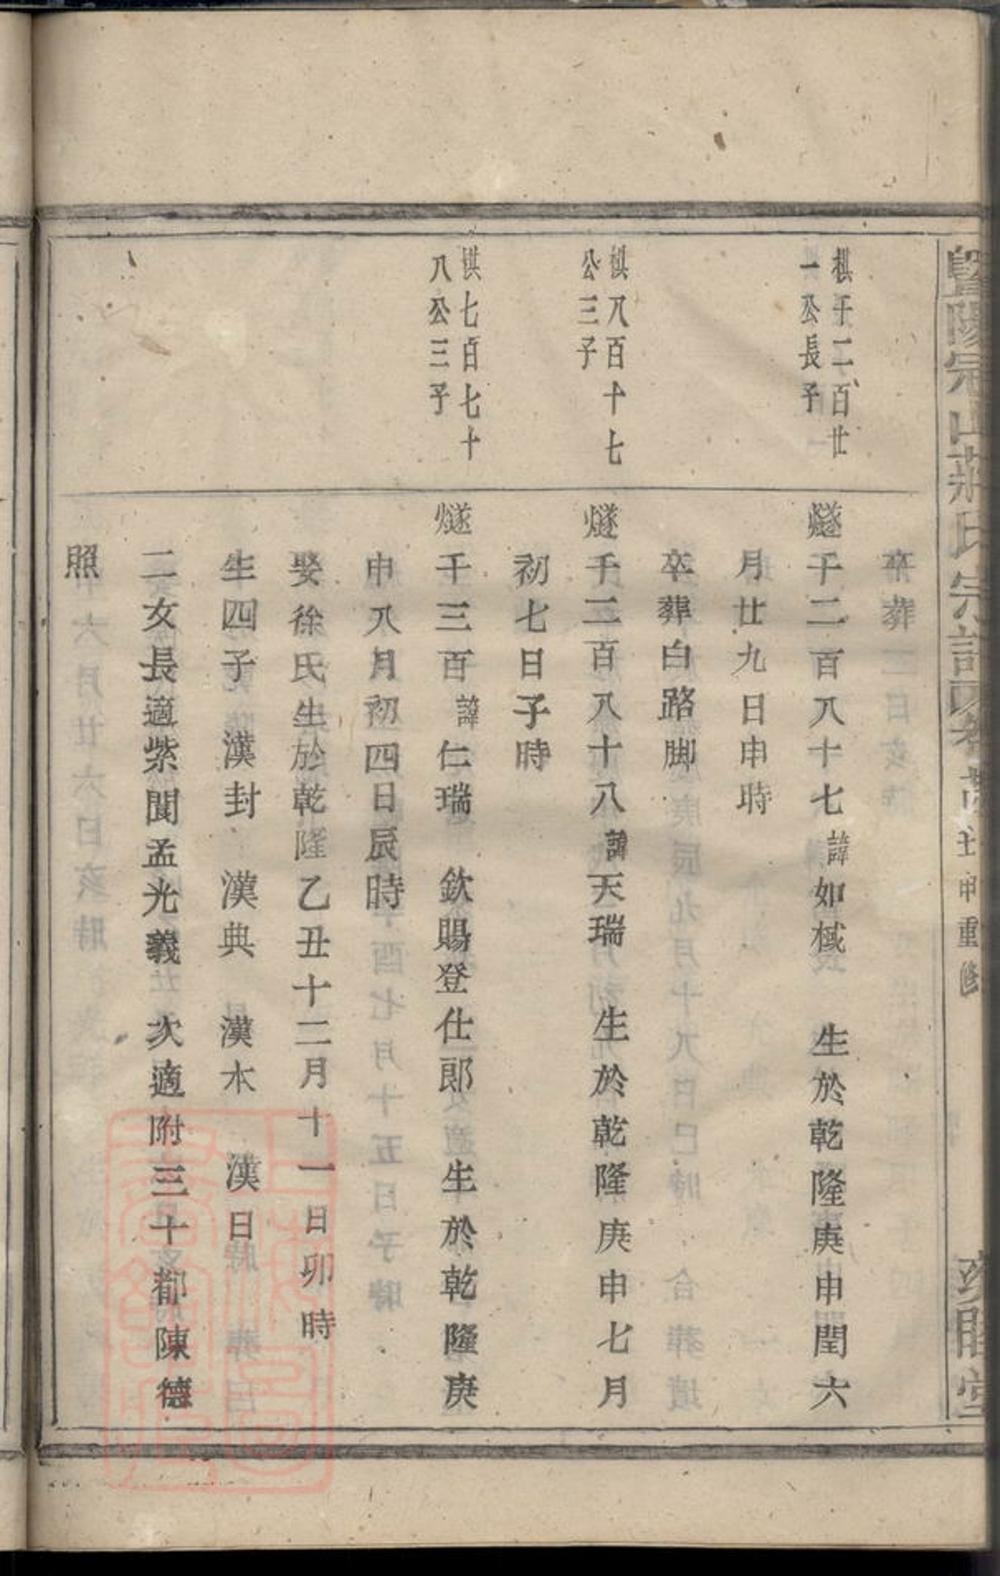 卒葬
棋千二百廿
一公長子
燧千二百八十七諱如棫 生於乾隆庚申閏六
月廿九日申時
卒葬白路脚
棋八百十七
公三子
燧千二百八十八諱天瑞 生於乾隆庚申七月
初七日子時
棋七百七十
八公三子
燧千三百諱仁瑞 欽賜登仕郎 生於乾隆庚
申八月初四日辰時
娶徐氏生於乾隆乙丑十二月十一日卯時
生四子漢封 漢典 漢木 漢日
二女長適紫閬孟光義 次適附三十都陳德
照